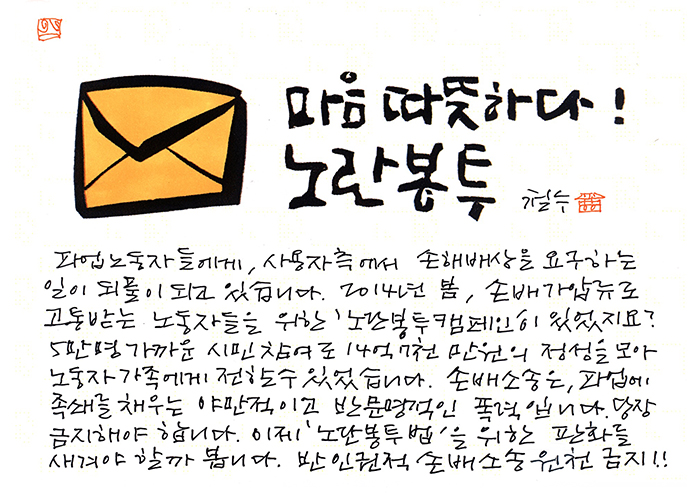 마음 따뜻하다!
노란봉투
철수
파업노동자들에게, 사용자측에서 손해배상을 요구하는
일이 되풀이 되고 있습니다. 2014년 봄, 손배가압류로
고통받는 노동자들을 위한 '노란봉투캠페인'이 있었지요?
5만명 가까운 시민참여로 14억 7천 만원의 정성을 모아
노동자가족에게 전할수 있었습니다. 손배소송은, 파업에
족쇄를 채우는 야만적이고 반문명적인 폭력입니다. 당장
금지해야 합니다. 이제 '노란봉투법'을 위한 판화를
새겨야 할까 봅니다. 반인권적 손배소송 원천 금지!!